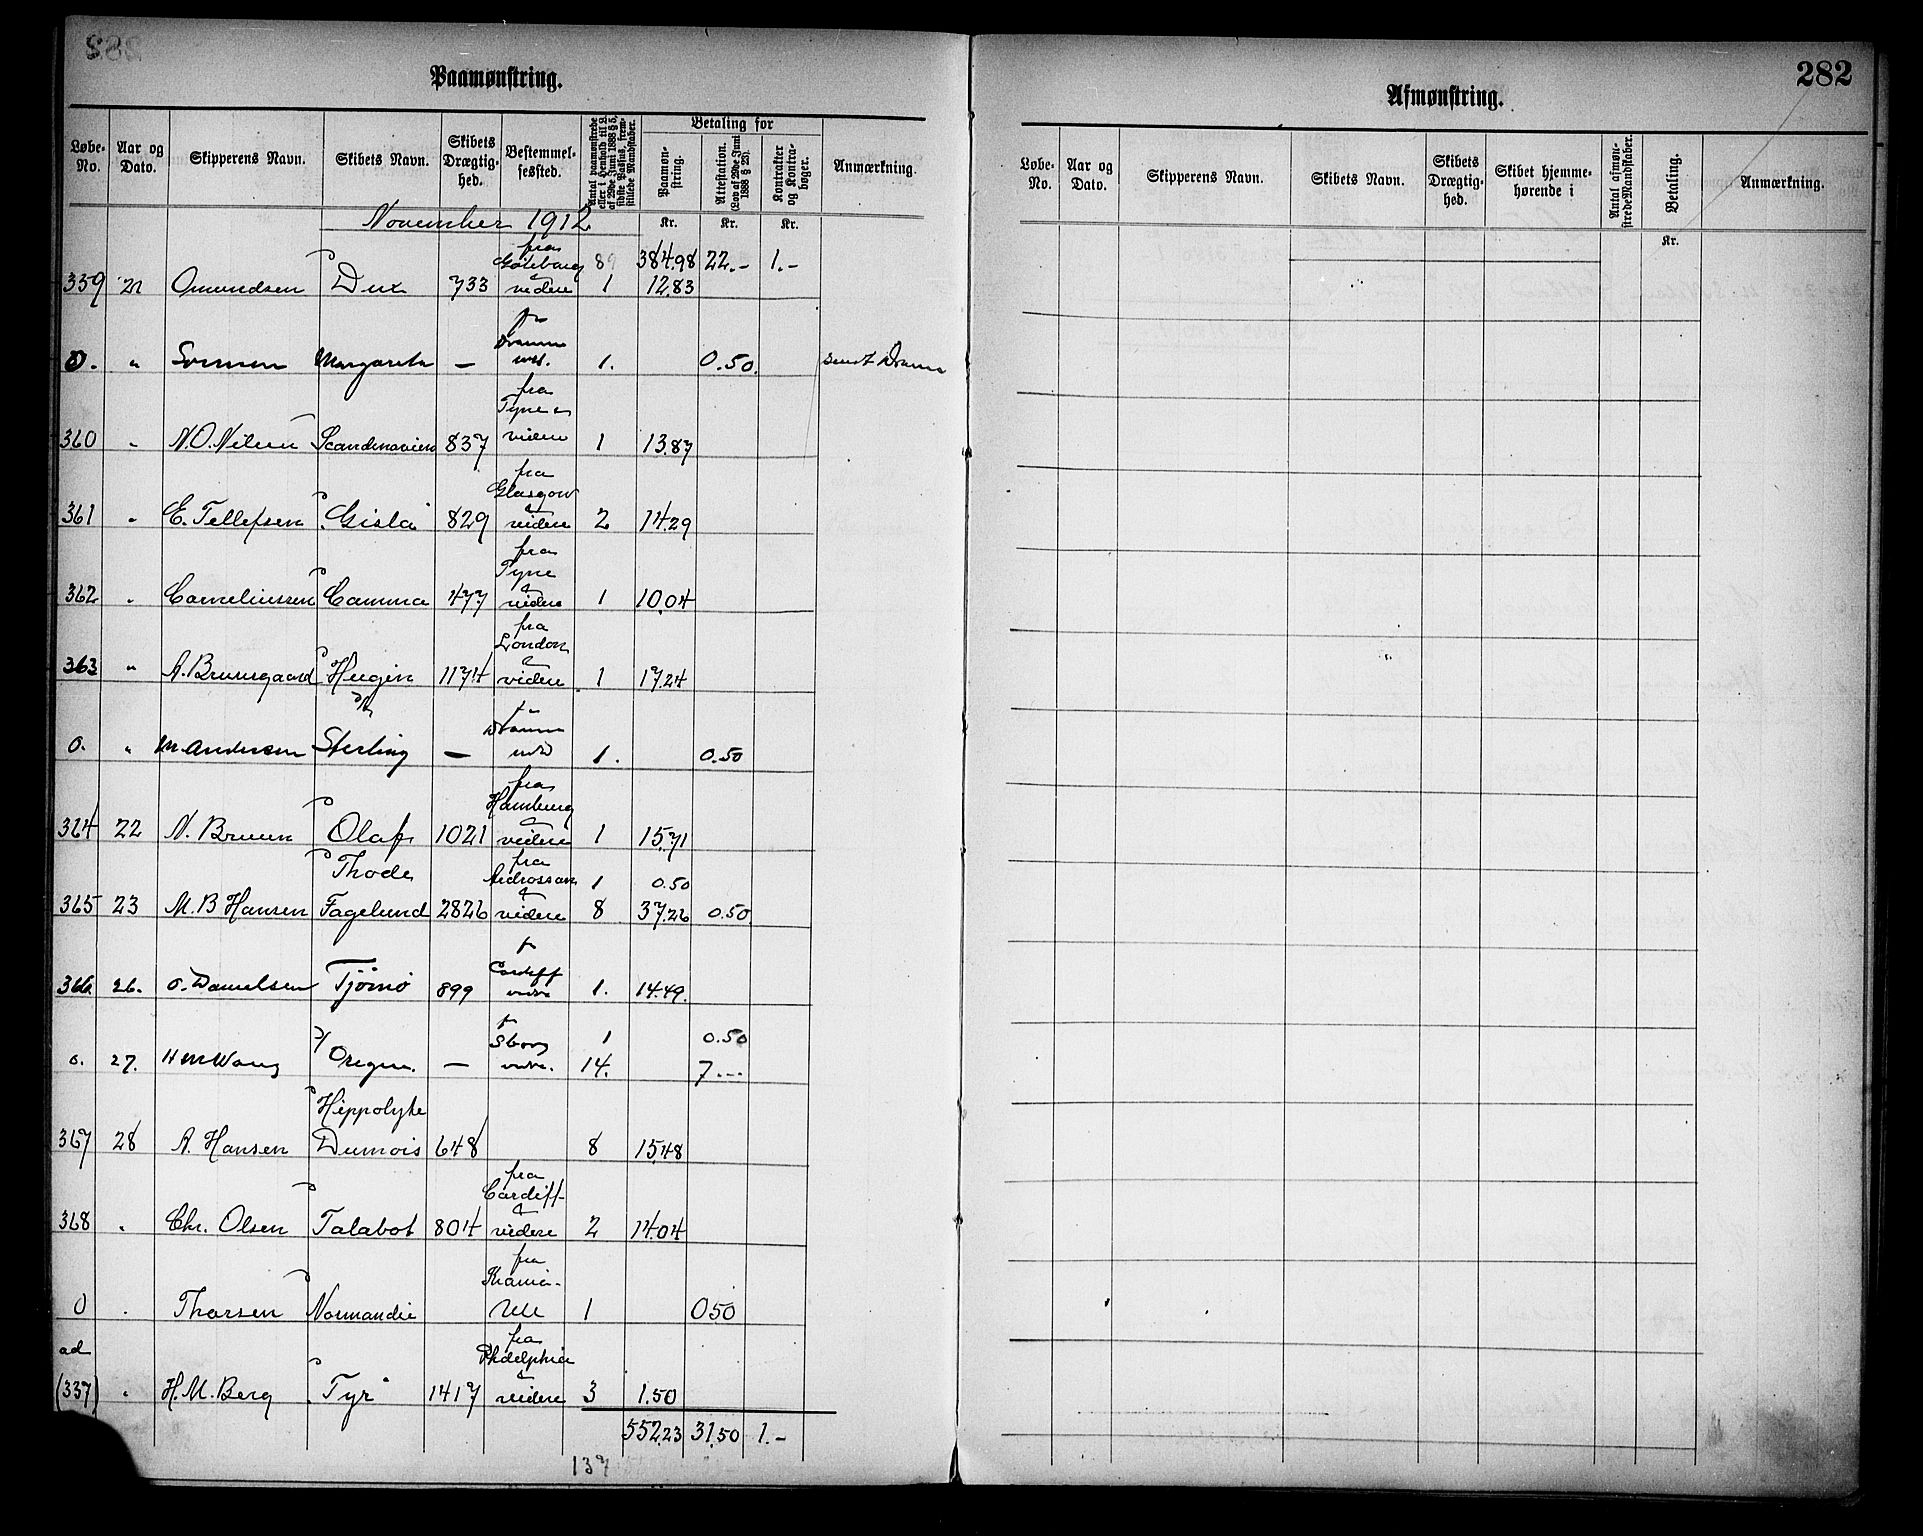 Paamønstring.
Løbe-No. Aar og Dato. Skipperens Navn. Skibets Navn. Skibets Drægtig-hed. Bestemmel-sessted. Antal paamønstrede eller i Henhold til L. af 29de Juni 1888 § 5, sidste Passus, frem-stillede Mandskaber. Betaling for Paamøn-string. Attestation. (Lov af 29de Juni 1888 § 23). Kontrakter og Kontra-bøger. Anmærkning.
November 1912 Kr. Kr. Kr.
fra
Göteborg 89 384.98 22.- 1.-
339 21 Omundsen Dux 733 & videre 1 12.83
0. " Margareta — 1. 0.50.
fra
Tyne &
360 " N.O. Nilsen Scandinavien 837 videre 1 13.87
fra
Glasgow
361 " E. Tellefsen "Gisla" 829 & videre 2 14.29
fra
Tyne
362 " Corneliussen Camma 477 & videre 1 10.04
fra
London
363 " A. Bruusgaard Hugin 1174 & videre 1 17.24
0. " M. Andersen Sterling — 1. 0.50
fra
Hamburg
364 22 N. Bruun Olaf 1021 & videre 1 15.71
Thode fra
Ardrossan 1 0.50
365 23 M.B Hansen Fagelund 2826 & videre 8 37.26 0.50
f
Cardiff
366. 26. O. Danielsen Tjömö 899 videre 1. 14.49.
1 0.50
0. 27. H M Wang — videre. 14. 7.--
Hippolyte
367 28 A. Hansen Dumois 648 8 15.48
fra
Cardiff
368 " Chr. Olsen Talabot 804 & videre 2 14.04
fra
0 " Thorsen Normandie 1 0.50
ad fra
Phidelphia
(337) " H.M. Berg "Tyr" 1417 & videre 3 1.50
552.23 31.50 1.-
137
282
Afmønstring.
Løbe-No. Aar og Dato. Skipperens Navn. Skibets Navn. Skibets Drægtig-hed. Skibet hjemme-hørende i Antal afmøn-strede Mandskaber. Betaling. Anmærkning.
Kr.